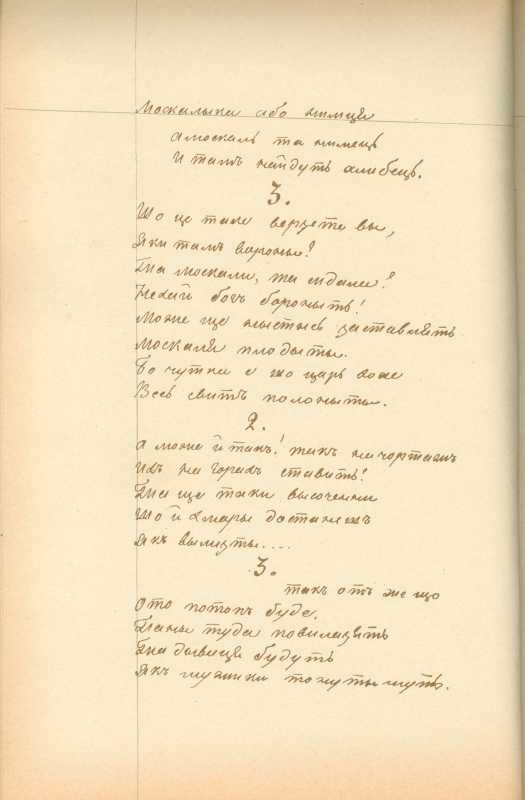 Москалыка або нимця
А москаль та нимець
И тамъ найдуть алибець.
3.
Що це таке верзете вы,
Яки тамъ вороны?
Та москали, та мдали?
Нехай богъ бороныть!
Може ще нысты въ заставлять
Москаля плодыты.
Бо чутка е що царь воже
Весь свитъ полоныты.
2.
А може й такъ! такъ на чортамъ
Ихъ на горахъ ставить?
Та ще таки высоченни
Що й хмары достанешъ
Якъ вылизты....
3.
такъ отъ же що
Ото потопъ буде.
Паны туда повилазять
Та дывиця будуть
Якъ мужики тонутымуть.